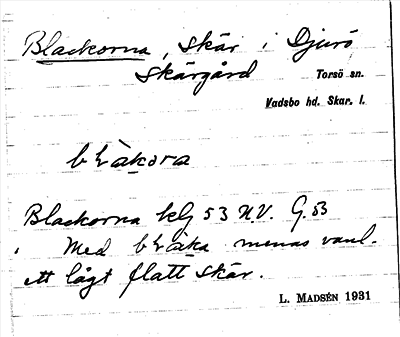 Blackorna, skär i Djurö
skärgård
Torsö sn.
Vadsbo hd. Skar. l.
blåkora
Blackorna klg 53 N.V. G.53
Med blåka menas vanl.
ett lågt flatt skär.
L. MADSÉN 1931